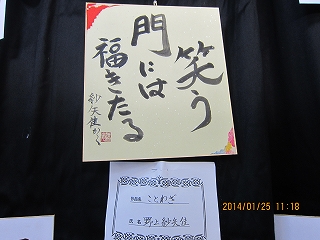 笑う
門には
福きたる
紗矢佳かく
ことわざ
氏名 野上紗矢佳
2014/01/25 11:18